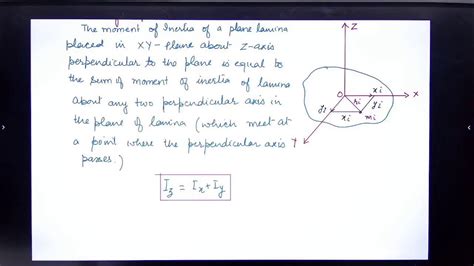 The moment of Inertia of a plane lamina
placed in XY-Plane about Z-axis
perpendicular to the plane is equal to
the sum of moment of inertia of lamina
about any two perpendicular axis in
the plane of lamina (which meet at
a point where the perpendicular axis
passes.)
I_z = I_x + I_y
Z
O
x_i
X
y_i
r_i
y_i
x_i
m_i
Y